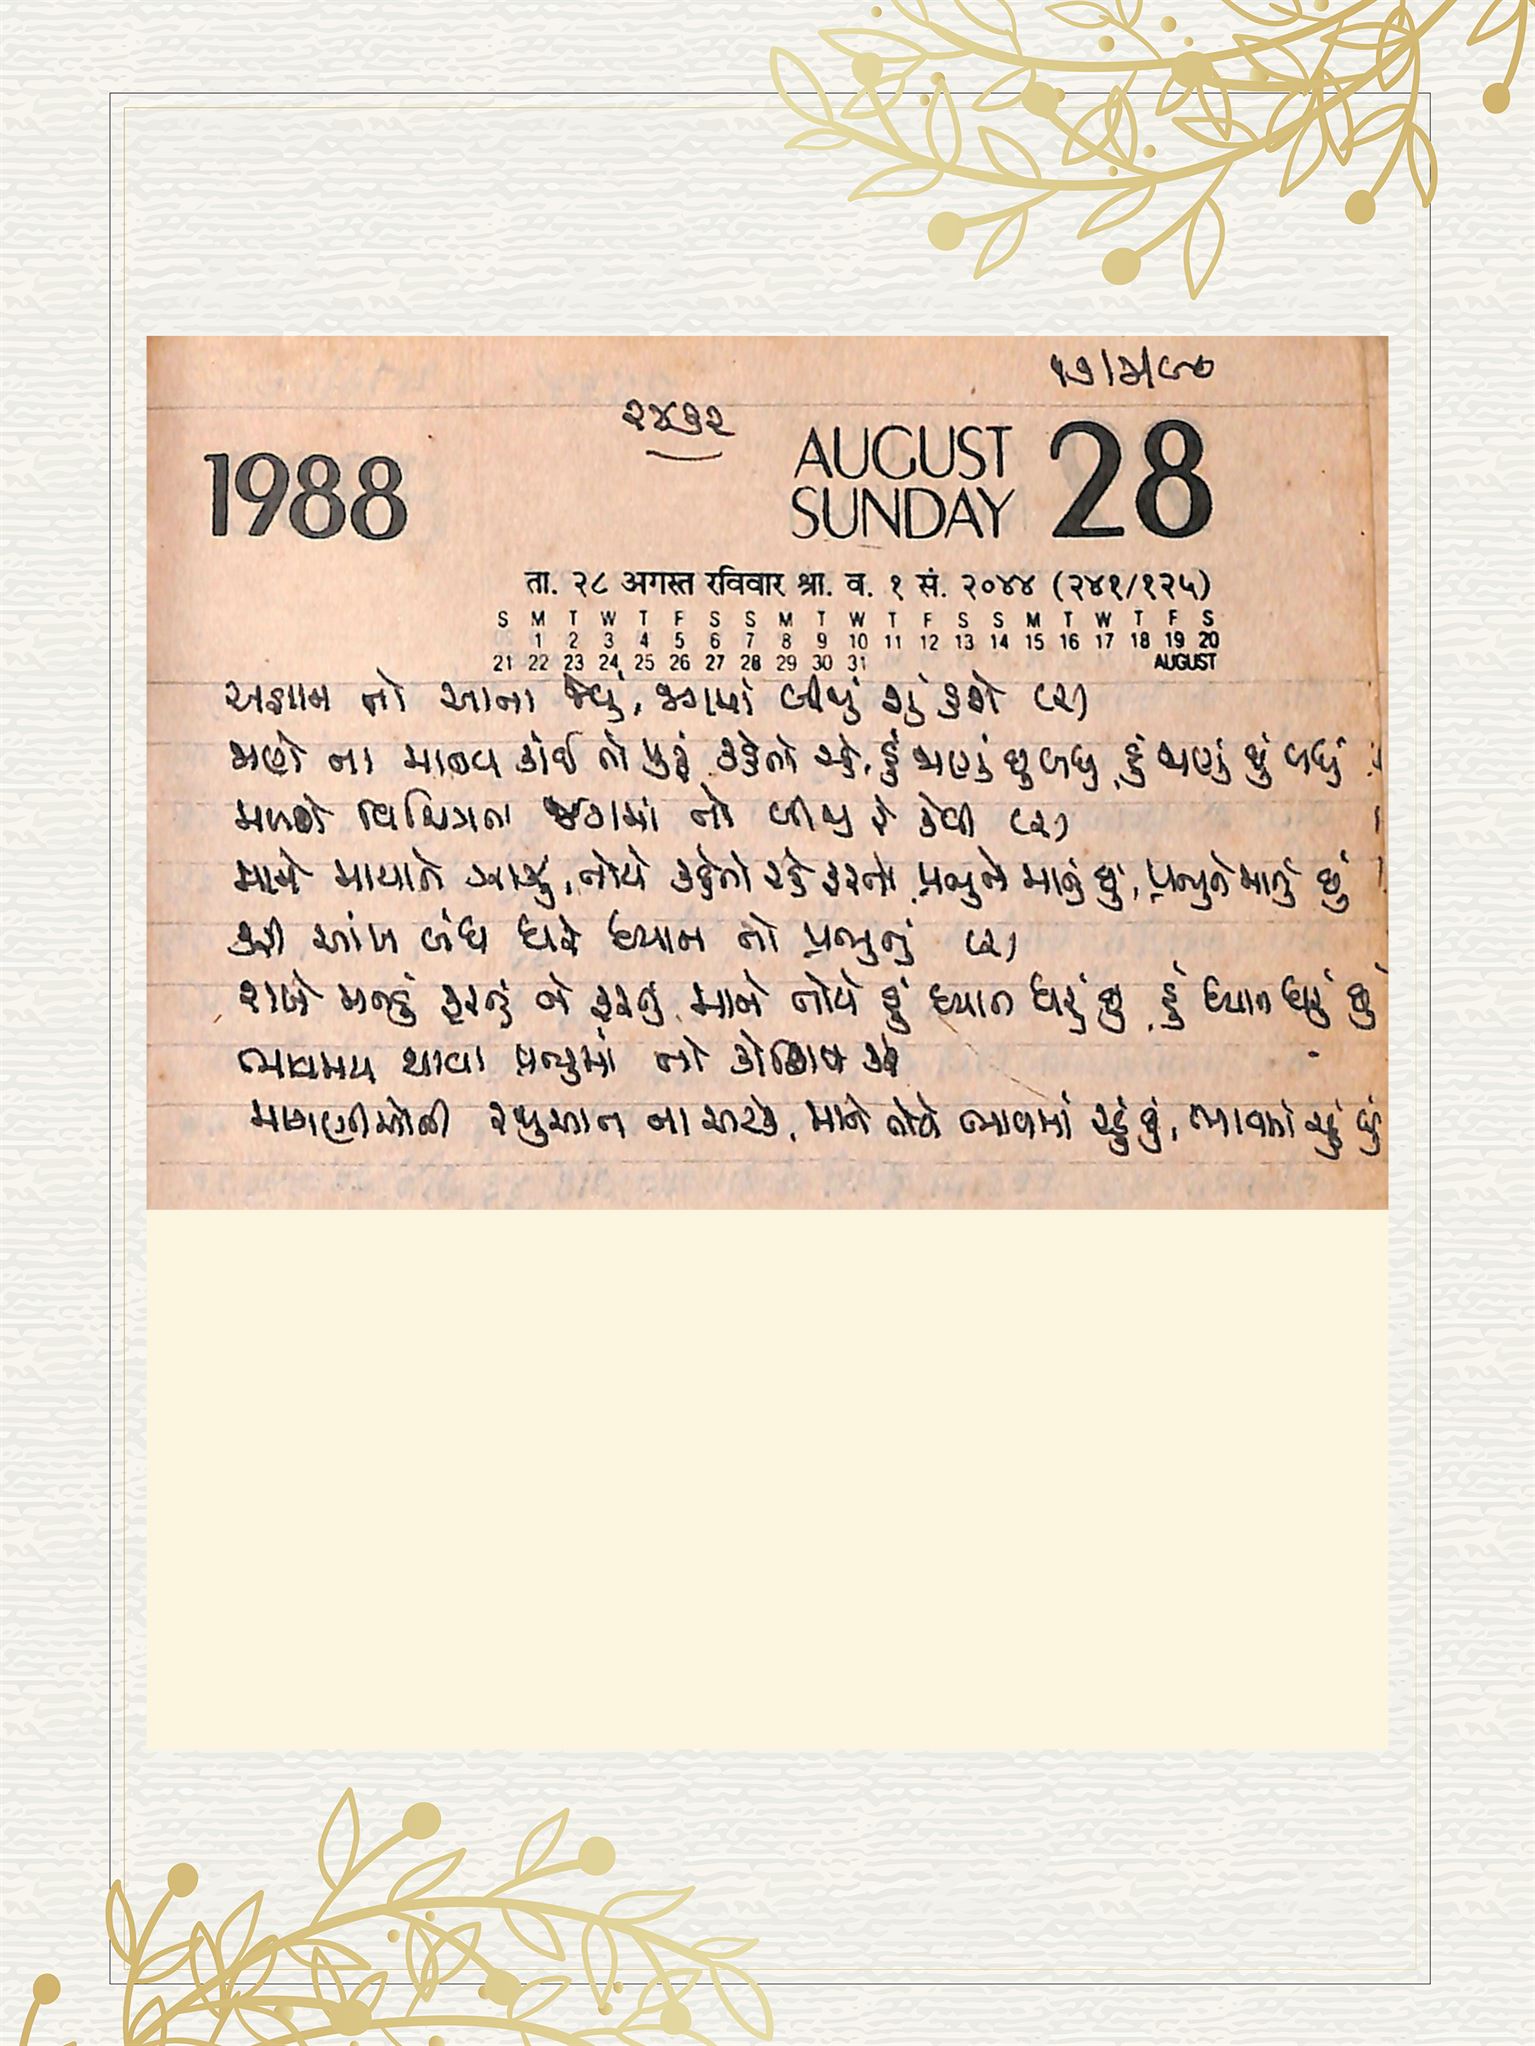 ૧૭/૩/૯૦
૨૪૩૨
1988
AUGUST 28
SUNDAY
ता. २८ अगस्त रविवार श्रा. व. १ सं. २०४४ (२४१/१२५)
S M T W T F S S M T W T F S S M T W T F S
1 2 3 4 5 6 7 8 9 10 11 12 13 14 15 16 17 18 19 20
21 22 23 24 25 26 27 28 29 30 31 AUGUST
અજ્ઞાન તો આના જેવું, જગમાં બીજું શું હશે (૨)
જાણે ના માનવ કાંઈ તો પુરું કહેતો રહે, હું જાણું છું બધું, હું જાણું છું બધું
મળશે વિચિત્રતા જગમાં તો બીજી રે કેવી (૨)
માને માયાને સાચું, તોયે કહેતો રહે ફરતો પ્રભુને માનું છું, પ્રભુને માનું છું
કરી આંખ બંધ ધરે ધ્યાન તો પ્રભુનું (૨)
રાખે મનડું ફરતું ને ફરતું, માને તોયે હું ધ્યાન ધરું છું, હું ધ્યાન ધરું છું
ભાવમય થાવા પ્રભુમાં તો કોશિશ કરે
માગણીઓની રફુઆત ના અટકે, માને તોયે ભાવમાં રહું છું, ભાવમાં રહું છું